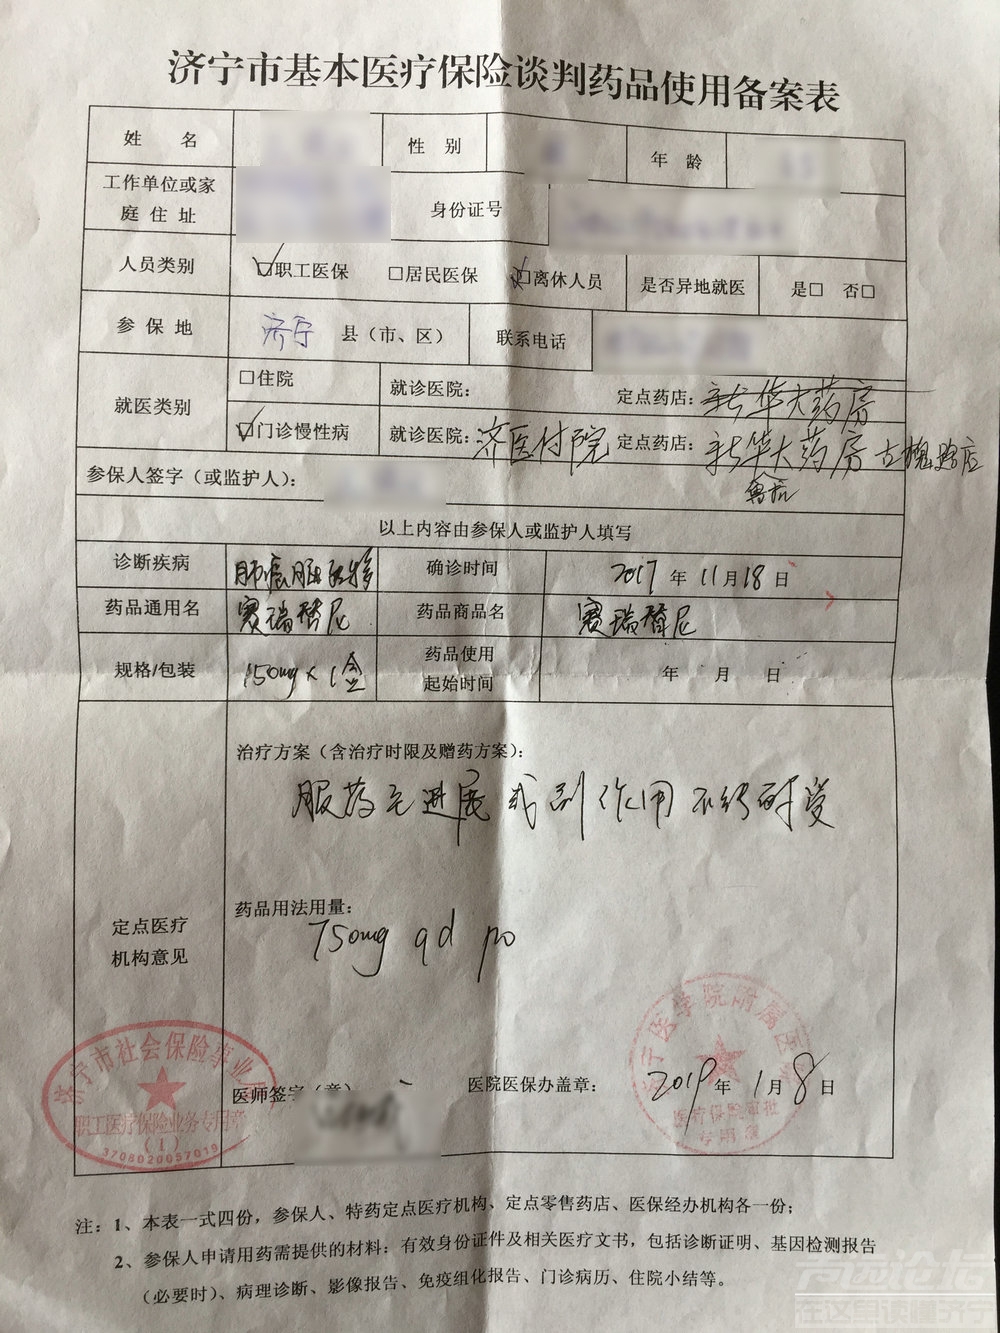 济宁市基本医疗保险谈判药品使用备案表
姓 名 性 别 年 龄
工作单位或家庭住址 身份证号
人员类别 职工医保 □居民医保 □离休人员 是否异地就医 是□ 否□
参 保 地 济宁 县（市、区） 联系电话
就医类别 □住院 就诊医院： 定点药店：新华大药房
门诊慢性病 就诊医院：济医付院 定点药店：新华大药房古槐路店
参保人签字（或监护人）：
以上内容由参保人或监护人填写
诊断疾病 肺癌脑转移 确诊时间 2017年11月18日
药品通用名 赛瑞替尼 药品商品名 赛瑞替尼
规格/包装 150mg×1盒 药品使用起始时间 年 月 日
治疗方案（含治疗时限及赠药方案）：
服药至进展或副作用不能耐受
定点医疗机构意见
药品用法用量：
750mg qd po
济宁市社会保险事业局
职工医疗保险业务专用章
（1）
3708020057019
医师签字（章）
医院医保办盖章： 2019年1月8日
济宁医学院附属医院
医疗保险审批
专用章
注：1、本表一式四份，参保人、特药定点医疗机构、定点零售药店、医保经办机构各一份；
2、参保人申请用药需提供的材料：有效身份证件及相关医疗文书，包括诊断证明、基因检测报告
（必要时）、病理诊断、影像报告、免疫组化报告、门诊病历、住院小结等。
在这里读懂济宁